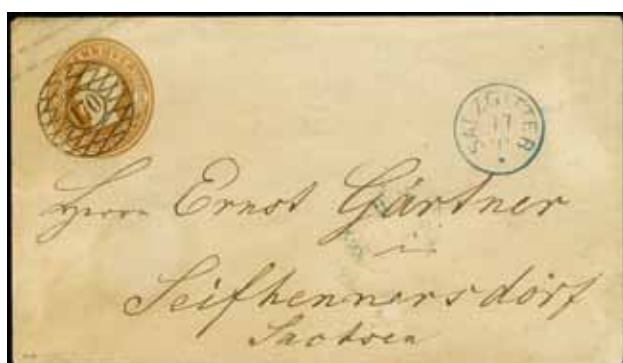 HANNOVER
SALZGITTER
17
Herrn Ernst Gärtner
in
Seifhennersdorf
Sachsen